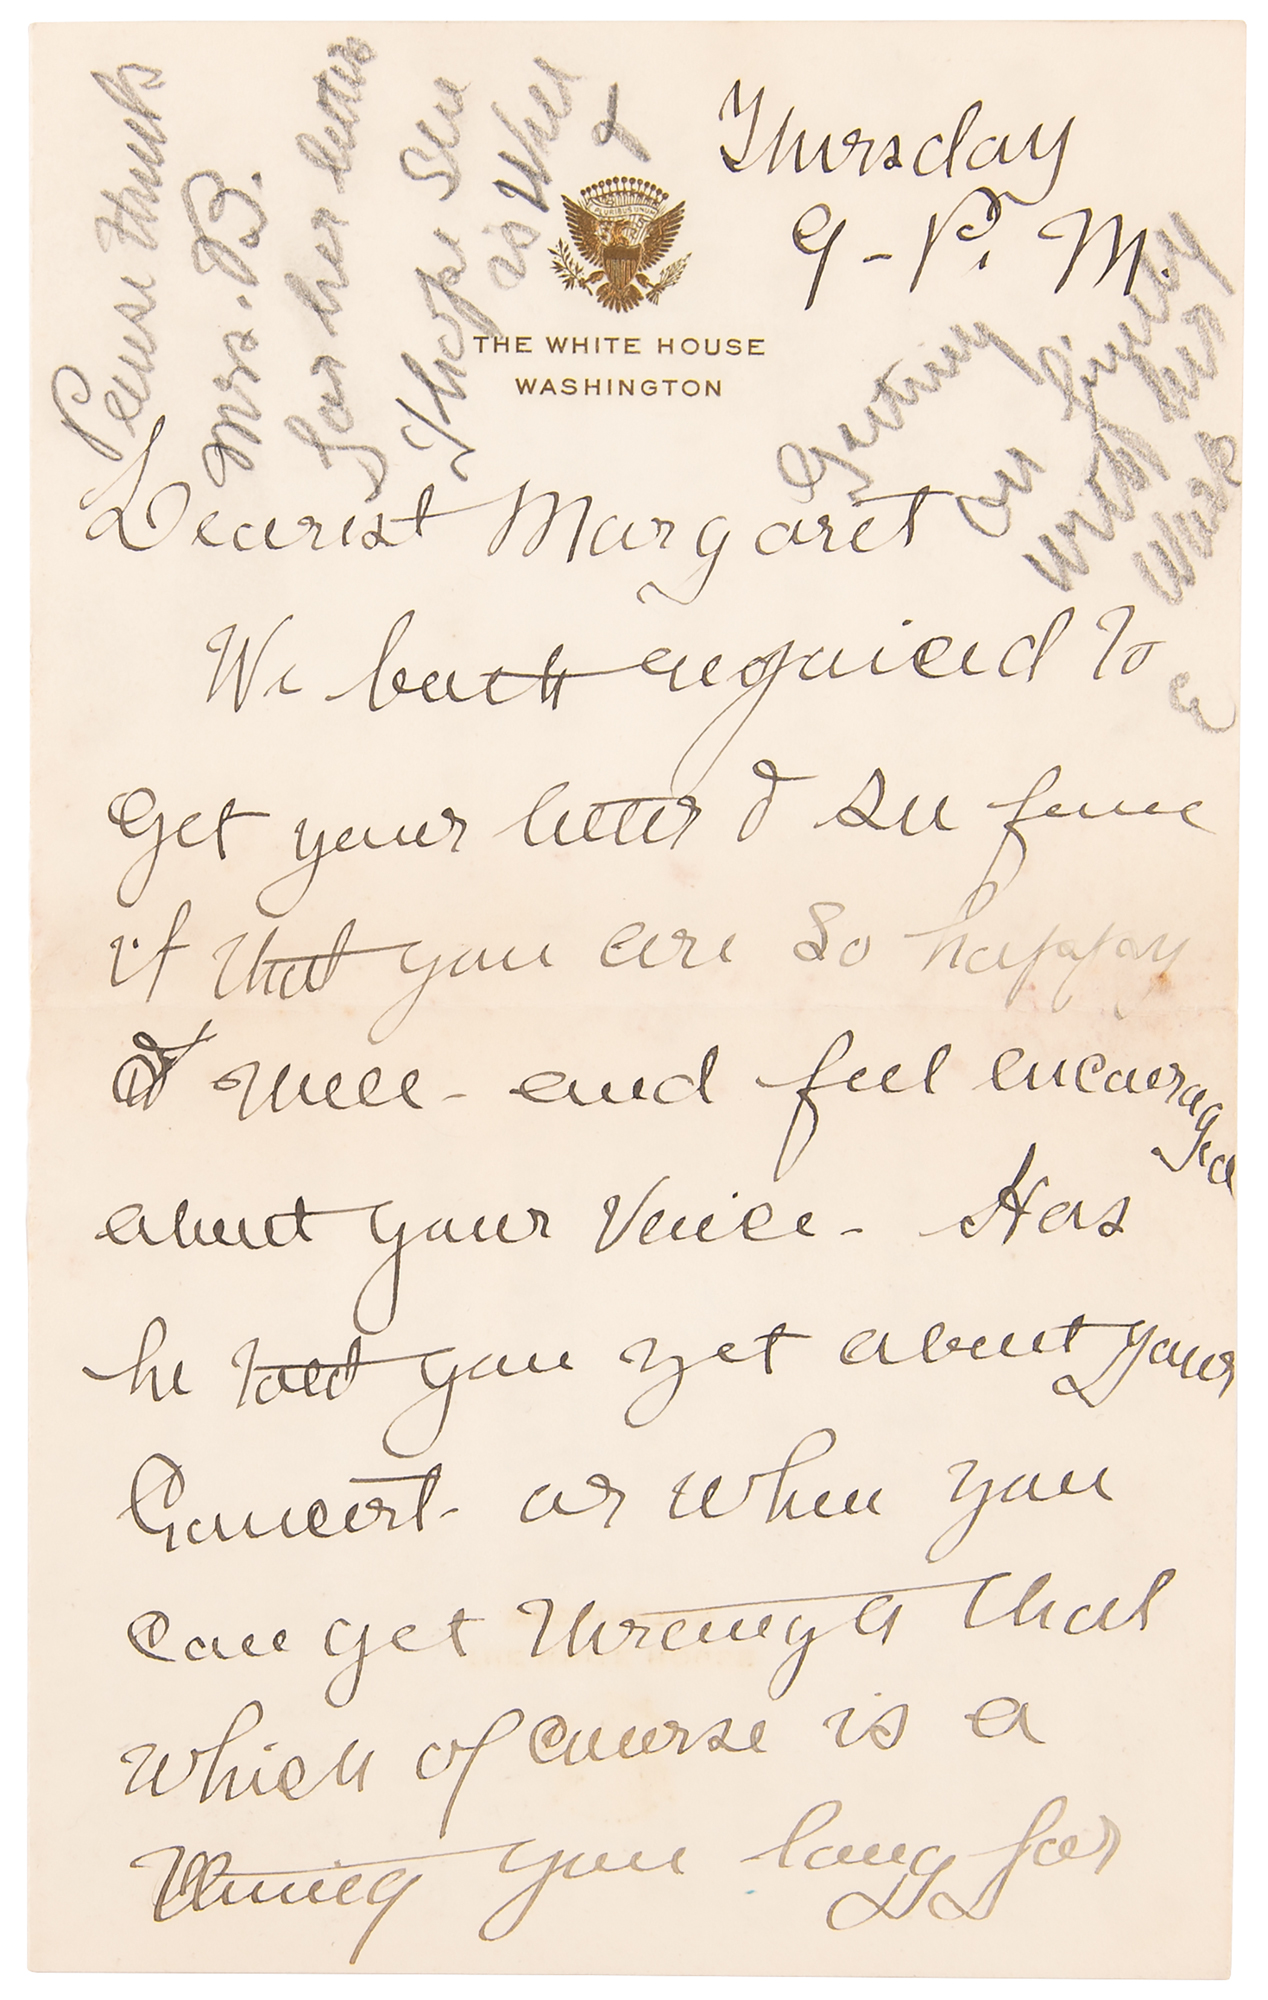 Please thank
Mrs. B.
for her letter
I hope she
is well
&
getting
on finely
with her
work
Thursday
9 - P. M.
E PLURIBUS UNUM
THE WHITE HOUSE
WASHINGTON
Dearest Margaret
We both rejoiced to
get your letter & see from
it that you are so happy
& well - and feel encouraged
about your voice - Has
he told you yet about your
Concert - or when you
can get through that
which of course is a
thing you long for